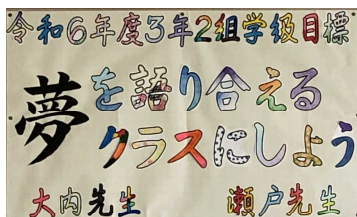 令和6年度3年2組学級目標
夢を語り合える
クラスにしよう
大内先生 瀬戸先生